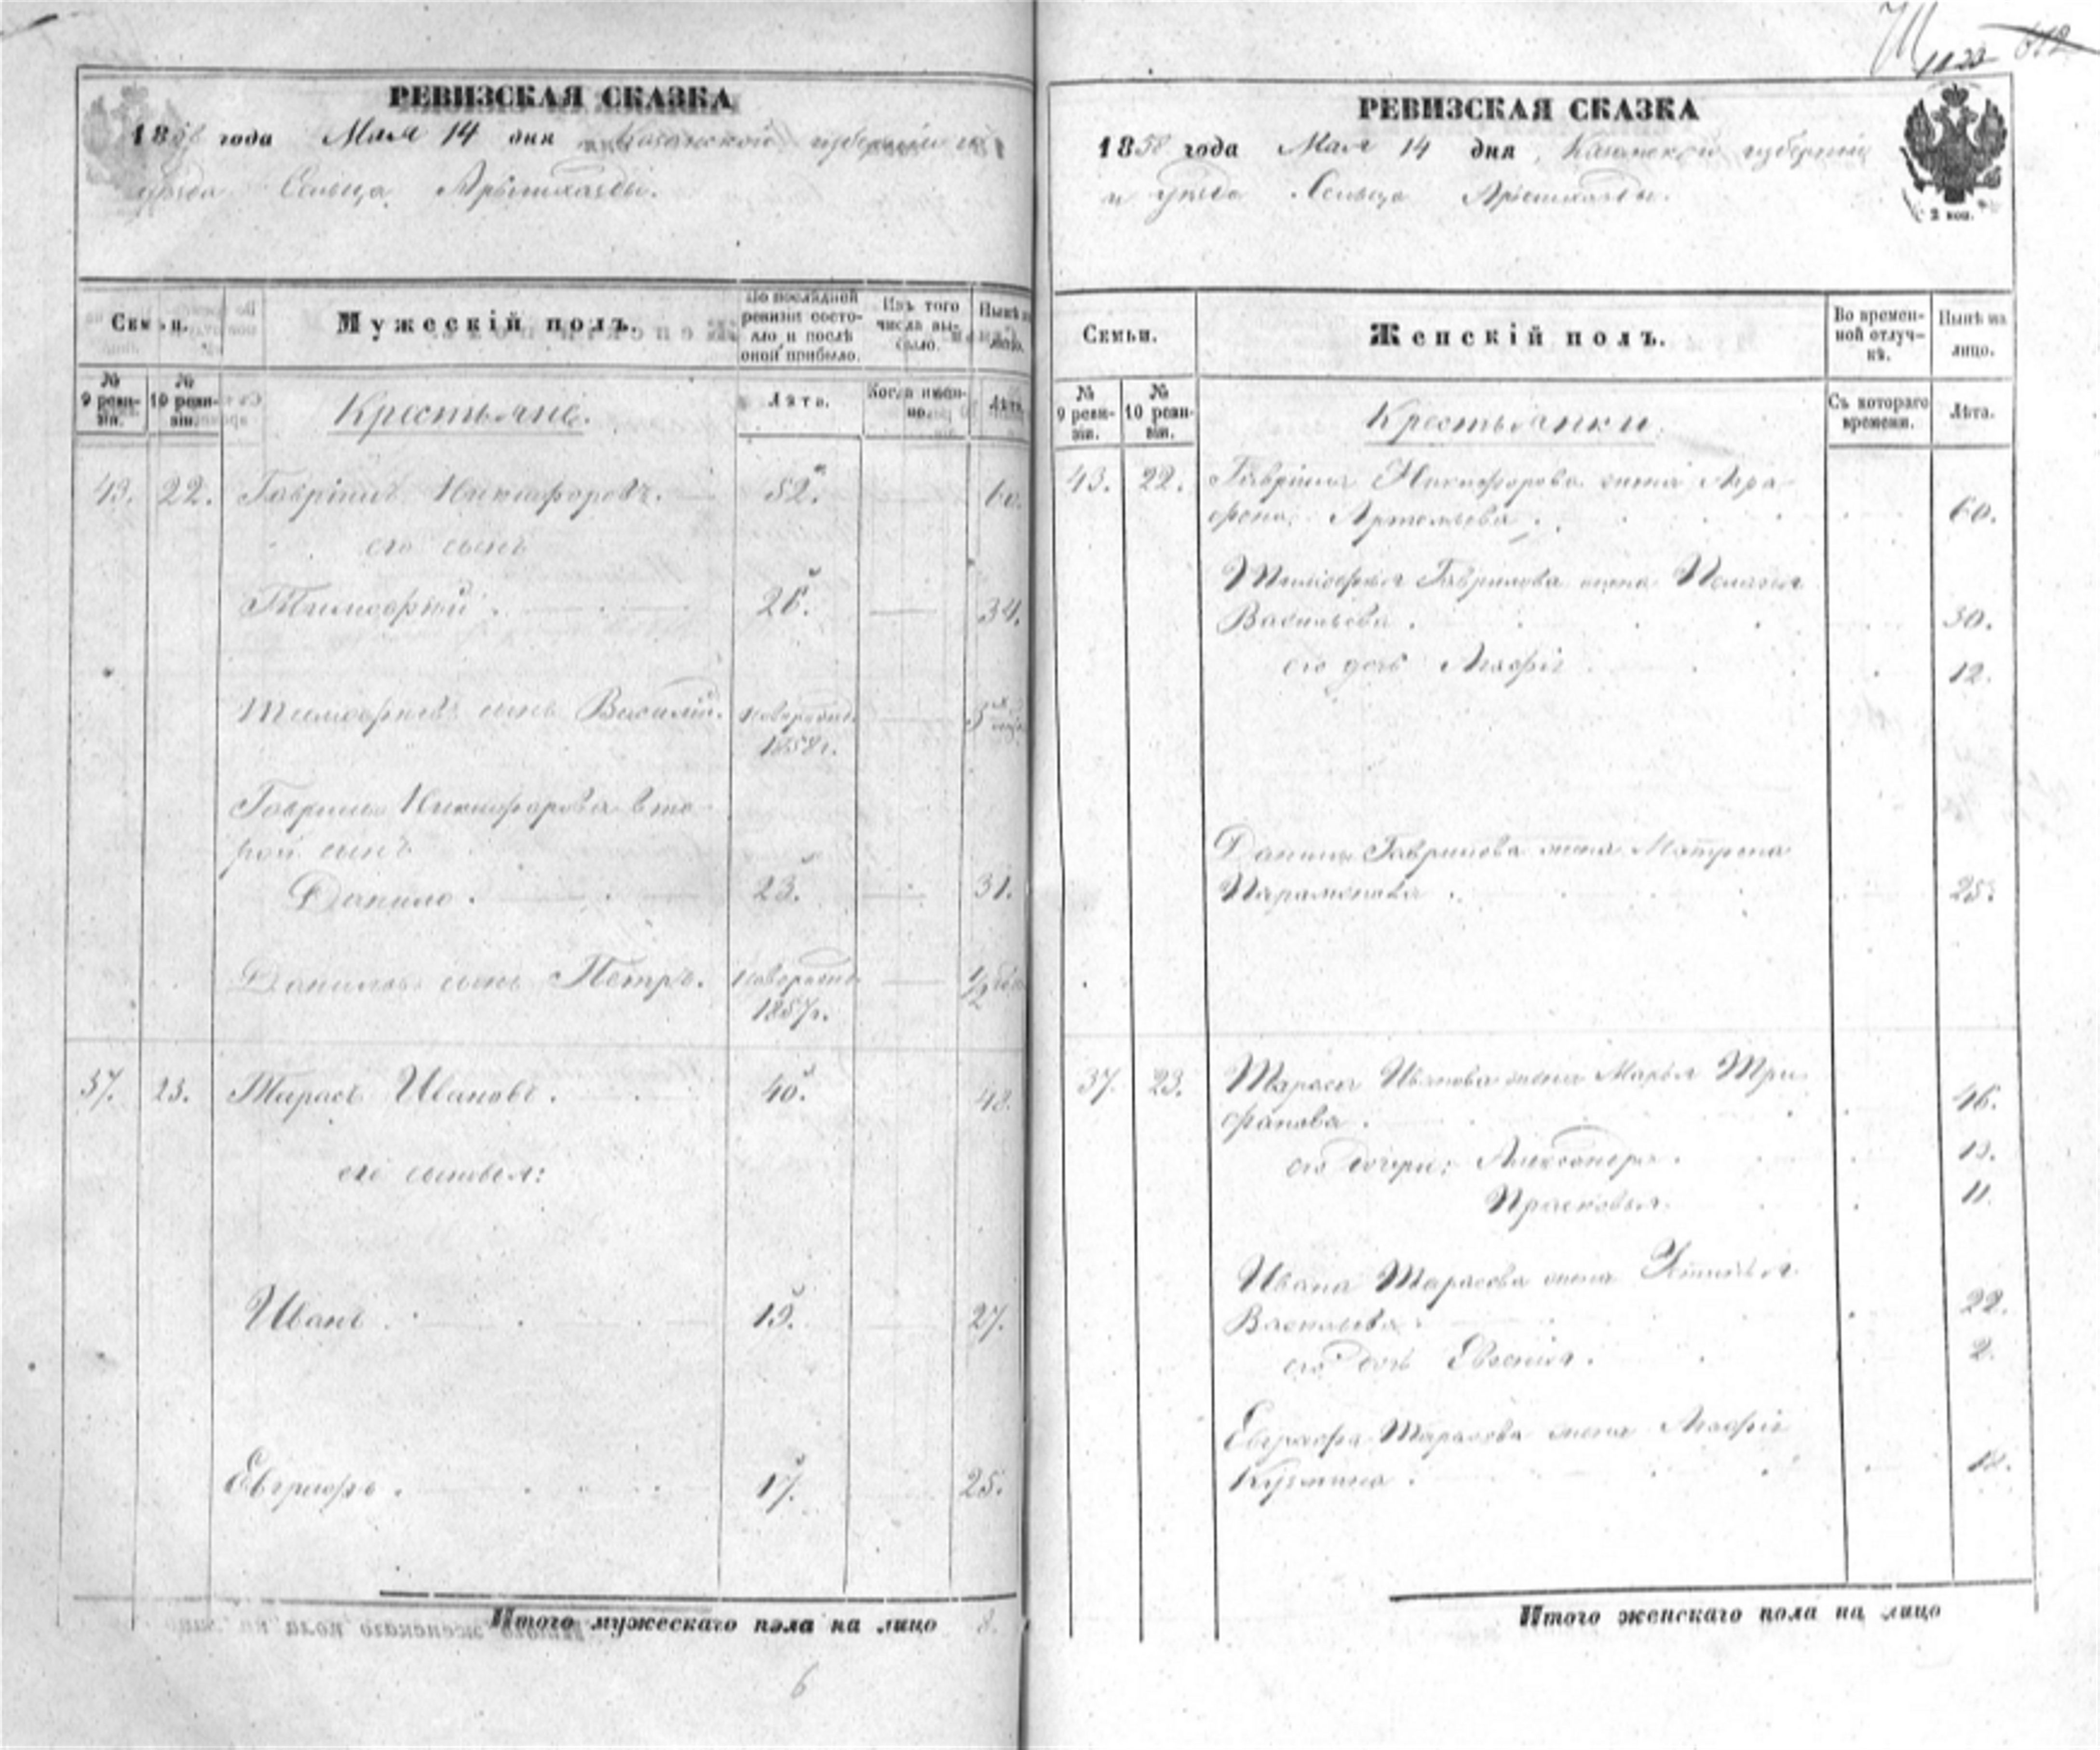 РЕВИЗСКАЯ СКАЗКА
1858 года Мая 14 дня Казанской губерніи и
уѣзда Сельца
Семьи.
Мужескій полъ.
По послѣдней ревизіи состояло и послѣ оной прибыло.
Изъ того числа выбыло.
Нынѣ на лицо.
№ 9 ревизіи.
№ 10 ревизіи.
Крестьяне.
Лѣта.
Когда именно.
Лѣта.
43. 22. Гавріилъ Никифоровъ. 52. 60.
его сынъ
Тимофѣй. 26. 34.
Тимофѣевъ сынъ Василій. новорожден. 5
1858 г.
Гаврилы Никифорова вто-
рой сынъ
Данило. 23. 31.
Даниловъ сынъ Петръ. новорожден. 1/2
1857 г.
37. 23. Тарасъ Ивановъ. 40. 48.
его сыновья:
Иванъ. 19. 27.
Евграфъ. 17. 25.
Итого мужескаго пола на лицо 8.
6
1123 612
РЕВИЗСКАЯ СКАЗКА
1858 года Мая 14 дня, Казанской губерніи
и уѣзда Сельца
2 коп.
Семьи.
Женскій полъ.
Во временной отлучкѣ.
Нынѣ на лицо.
№ 9 ревизіи.
№ 10 ревизіи.
Крестьянки.
Съ котораго времени.
Лѣта.
43. 22. Гавріила Никифорова жена Агра-
фена Артемьева. 60.
Тимофѣя Гаврилова жена Пелагея
Васильева. 30.
его дочь Агафія 12.
Данилы Гаврилова жена Матрена
Парамонова. 25.
37. 23. Тараса Иванова жена Марья Три-
фанова. 46.
его дочери: Александра. 13.
Прасковья. 11.
Ивана Тарасова жена Устинья
Васильева. 22.
его дочь Евгенія. 2.
Евграфа Тарасова жена Агафія
Кузмина. 18.
Итого женскаго пола на лицо